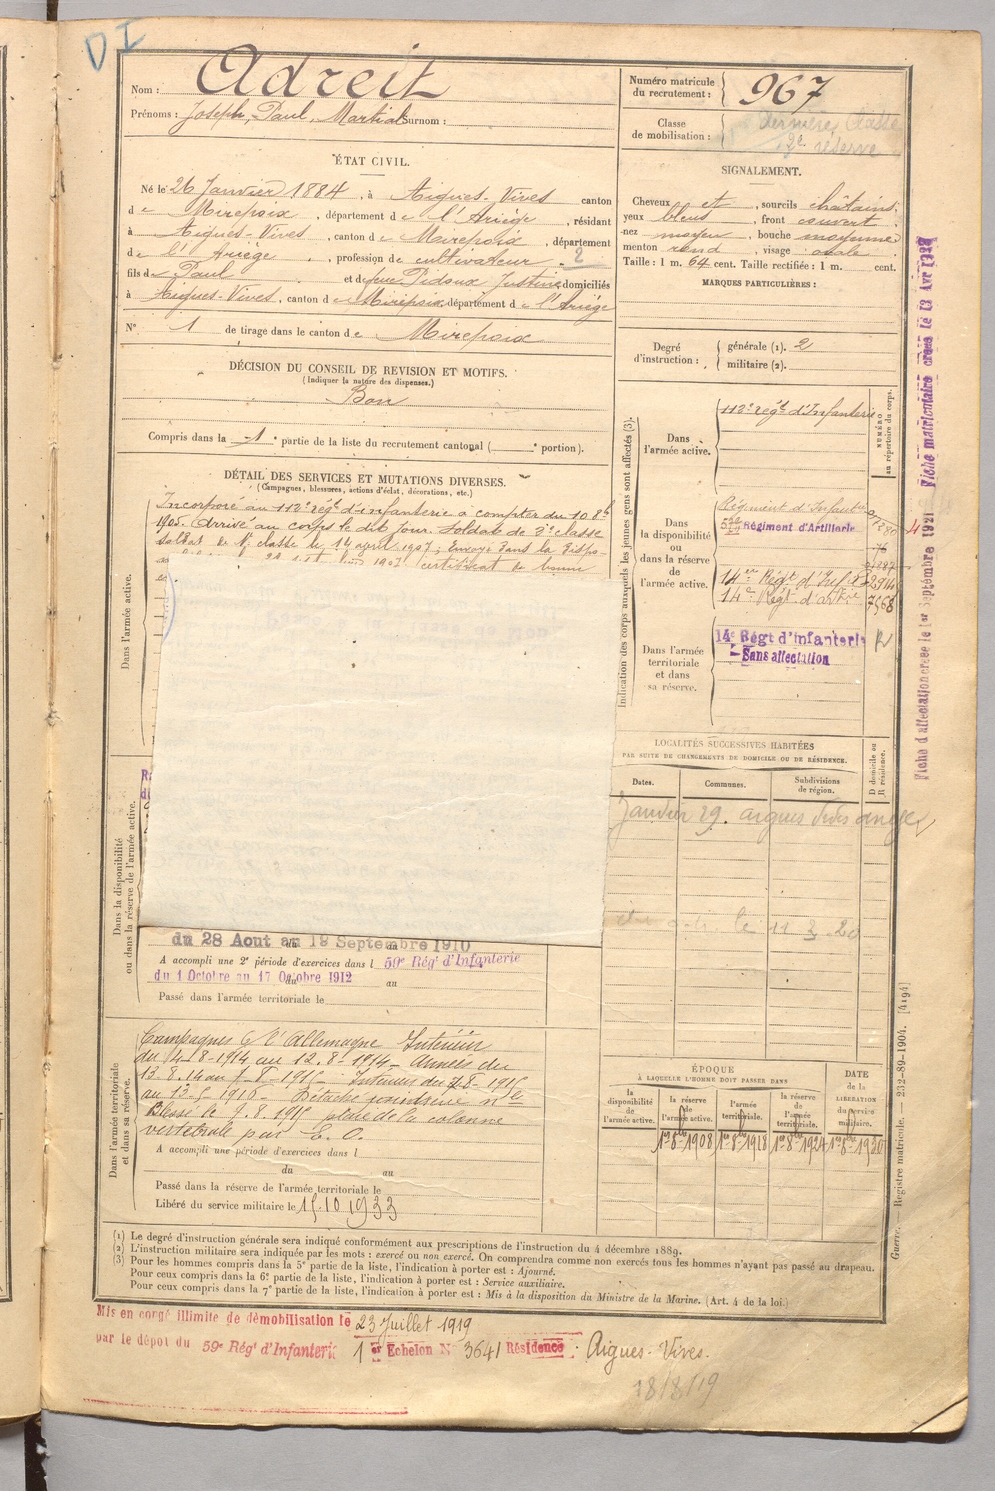 DI
Nom : Adreit
Prénoms : Joseph, Paul, Martial Surnom :
Numéro matricule du recrutement : 967
Classe de mobilisation : dernière Classe
2e réserve
ÉTAT CIVIL.
Né le 26 Janvier 1884, à Aigues-Vives canton
de Mirepoix, département de l'Ariège, résidant
à Aigues-Vives, canton de Mirepoix, département
de l'Ariège, profession de cultivateur 2
fils de Paul et de feue Pidoux Justine domiciliés
à Aigues-Vives, canton de Mirepoix département de l'Ariège
N° 1 de tirage dans le canton de Mirepoix
SIGNALEMENT.
Cheveux et, sourcils châtains,
yeux bleus, front couvert
nez moyen, bouche moyenne
menton rond, visage ovale
Taille : 1 m. 64 cent. Taille rectifiée : 1 m. cent.
MARQUES PARTICULIÈRES :
Degré d'instruction : générale (1). 2
militaire (2).
DÉCISION DU CONSEIL DE REVISION ET MOTIFS.
(Indiquer la nature des dispenses.)
Bon
Compris dans la 1e partie de la liste du recrutement cantonal ( e portion).
DÉTAIL DES SERVICES ET MUTATIONS DIVERSES.
(Campagnes, blessures, actions d'éclat, décorations, etc.)
Dans l'armée active.
Incorporé au 112e régt d'infanterie à compter du 10 8bre
1905. Arrivé au corps le dit jour. Soldat de 2e classe
soldat de 1e classe le 14 avril 1907, envoyé dans la dispo-
certificat de bonne
Indication des corps auxquels les jeunes gens sont affectés (3).
NUMÉRO au répertoire du corps.
Dans l'armée active.
112e régt d'Infanterie
Dans la disponibilité ou dans la réserve de l'armée active.
Régiment d'Infanterie
Régiment d'Artillerie
14e Régt d'Infie 2914
14e Régt d'artie 7568
Dans l'armée territoriale et dans sa réserve.
14e Régt d'infanterie
Sans affectation
Fiche d'affectation créée le 1er Septembre 1921
Fiche matriculaire créée le 12 Avr 1928
LOCALITÉS SUCCESSIVES HABITÉES
PAR SUITE DE CHANGEMENTS DE DOMICILE OU DE RÉSIDENCE.
Dates. Communes. Subdivisions de région. D domicile ou R résidence.
Janvier 29. aigues Vives ariège
le 11 3 20
Dans la disponibilité ou dans la réserve de l'armée active.
du 28 Aout au 19 Septembre 1910
A accompli une 2e période d'exercices dans l 59e Régt d'Infanterie
du 1 Octobre au 17 Octobre 1912 au
Passé dans l'armée territoriale le
Dans l'armée territoriale et dans sa réserve.
Campagnes C/ l'Allemagne Intérieur
du 4-8-1914 au 12-8-1914 - Armées du
Intérieur du
Blessé le plaie de la colonne
vertebrale par E. O.
A accompli une période d'exercices dans l
du au
Passé dans la réserve de l'armée territoriale le
Libéré du service militaire le 15.10 1933
ÉPOQUE
À LAQUELLE L'HOMME DOIT PASSER DANS
DATE de la LIBÉRATION du service militaire.
la disponibilité de l'armée active. la réserve de l'armée active. l'armée territoriale. la réserve de l'armée territoriale.
1er 8bre 1908 1er 8bre 1918 1er 8bre 1924 1er 8bre 1930
Guerre. — Registre matricule. — 232-89-1904. [4194]
(1) Le degré d'instruction générale sera indiqué conformément aux prescriptions de l'instruction du 4 décembre 1889.
(2) L'instruction militaire sera indiquée par les mots : exercé ou non exercé. On comprendra comme non exercés tous les hommes n'ayant pas passé au drapeau.
(3) Pour les hommes compris dans la 5e partie de la liste, l'indication à porter est : Ajourné.
Pour ceux compris dans la 6e partie de la liste, l'indication à porter est : Service auxiliaire.
Pour ceux compris dans la 7e partie de la liste, l'indication à porter est : Mis à la disposition du Ministre de la Marine. (Art. 4 de la loi.)
Mis en congé illimité de démobilisation le 23 Juillet 1919
par le dépôt du 59e Régt d'Infanterie 1er Echelon N° 3641 Résidence : Aigues-Vives.
18/8/19